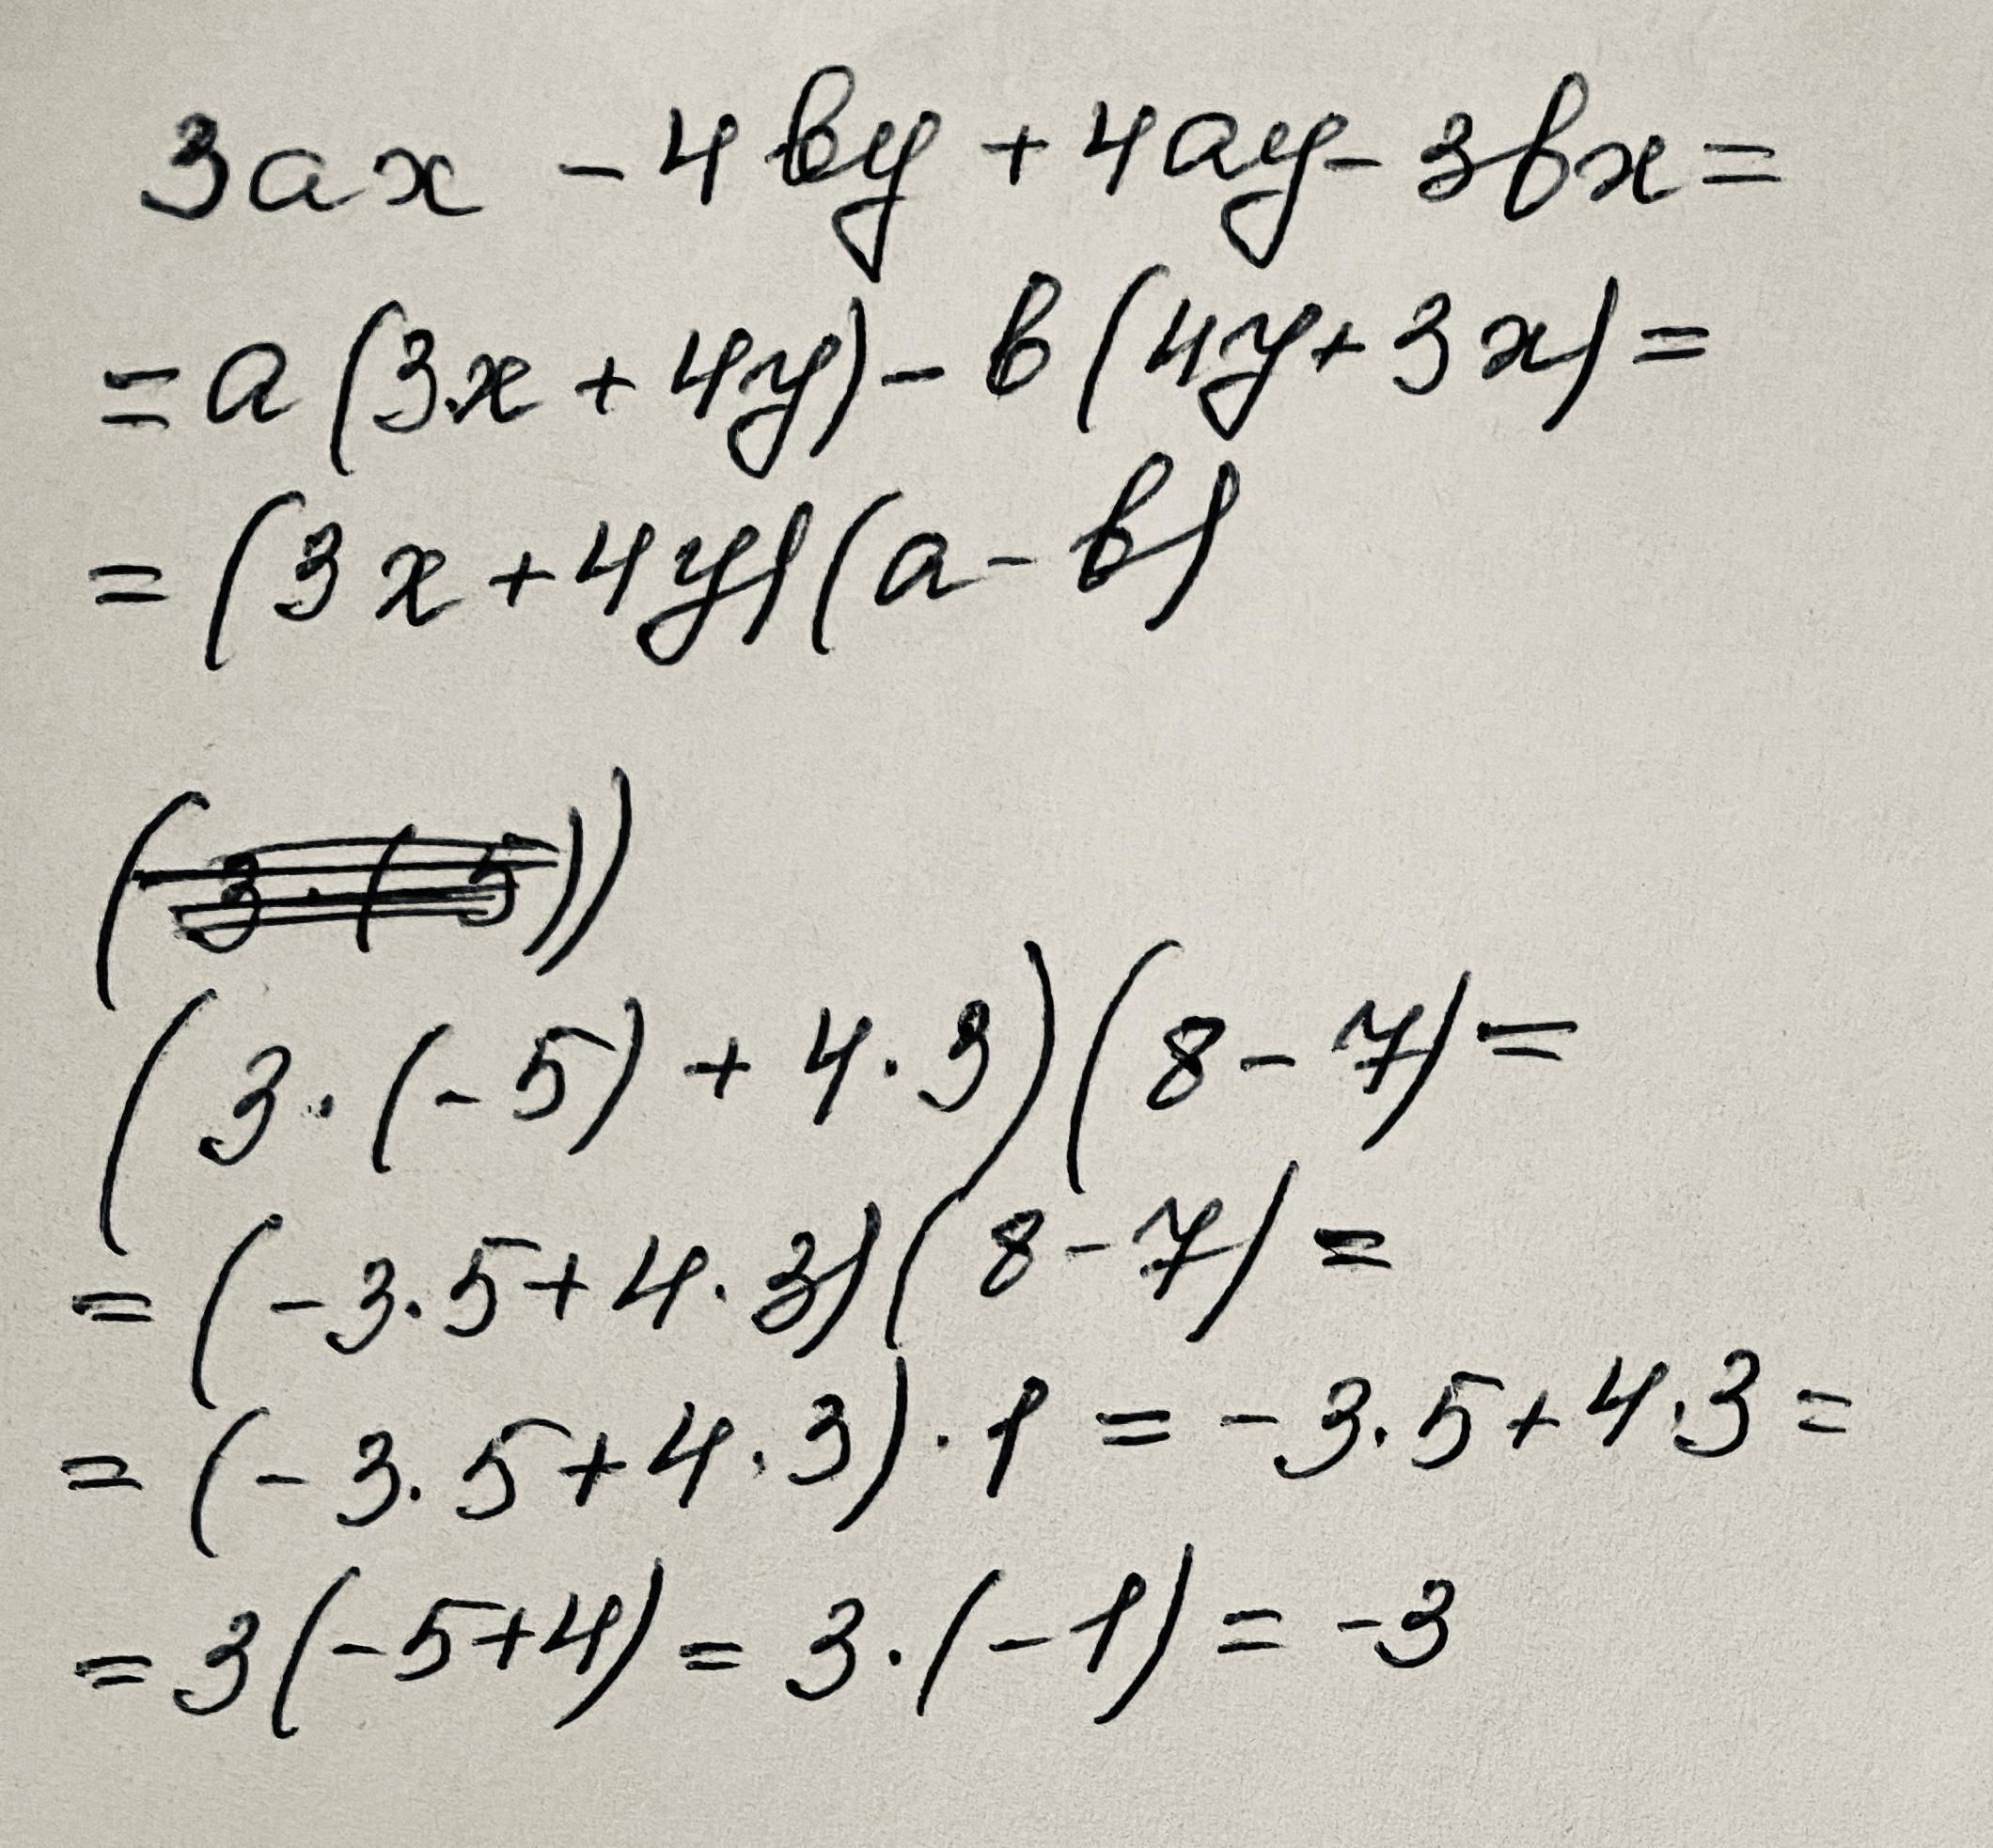 3ax - 4by + 4ay - 3bx =
= a (3x + 4y) - b (4y + 3x) =
= (3x + 4y) (a - b)
(3 · (-5))
(3 · (-5) + 4 · 3) (8 - 7) =
= (-3 · 5 + 4 · 3) (8 - 7) =
= (-3 · 5 + 4 · 3) · 1 = -3 · 5 + 4 · 3 =
= 3 (-5 + 4) = 3 · (-1) = -3